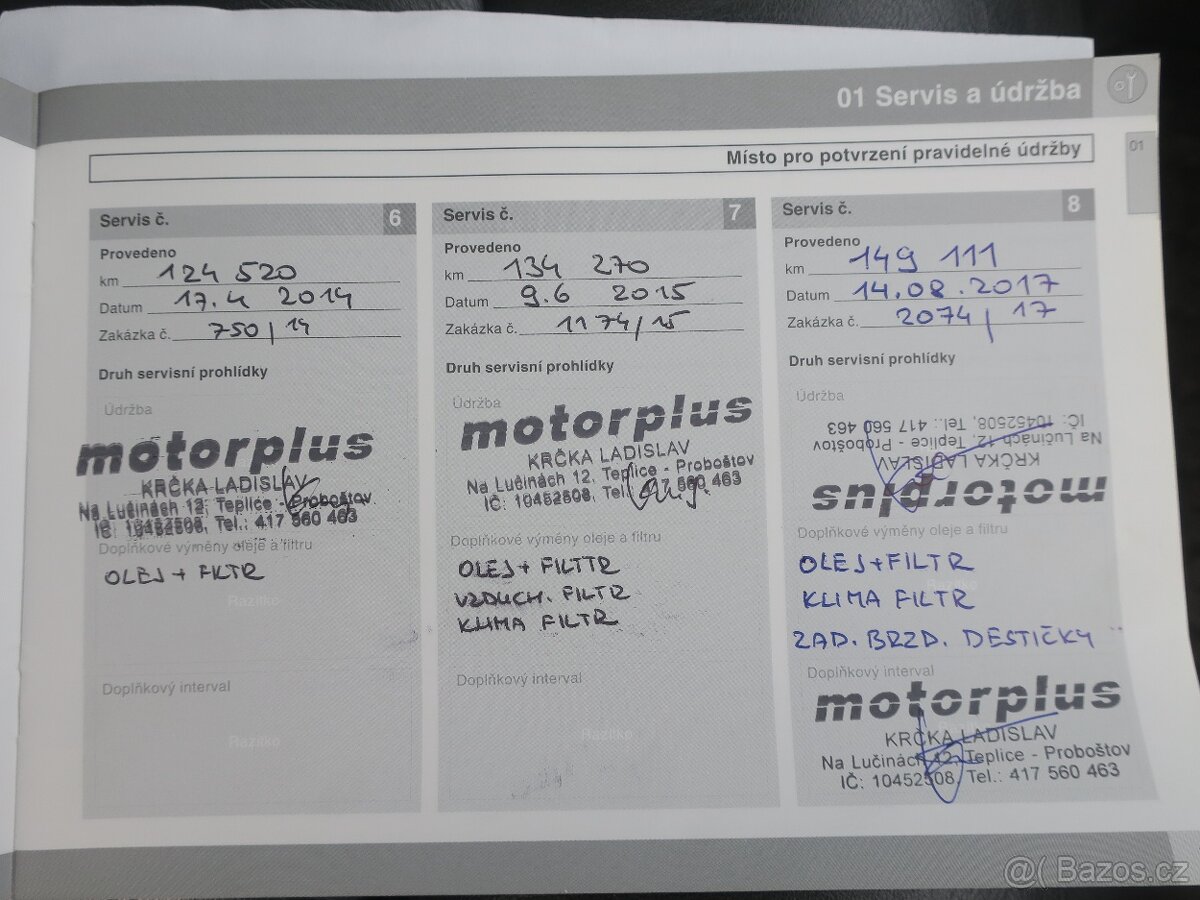 01 Servis a údržba
01
Místo pro potvrzení pravidelné údržby
Servis č. 6
Provedeno
km 124 520
Datum 17.4 2014
Zakázka č. 750/14
Druh servisní prohlídky
Údržba
motorplus
KRČKA LADISLAV
Na Lučinách 12, Teplice - Proboštov
IČ: 10452508, Tel.: 417 560 463
Doplňkové výměny oleje a filtru
OLEJ + FILTR
Razítko
Doplňkový interval
Razítko
Servis č. 7
Provedeno
km 134 270
Datum 9.6 2015
Zakázka č. 1174/15
Druh servisní prohlídky
Údržba
motorplus
KRČKA LADISLAV
Na Lučinách 12, Teplice - Proboštov
IČ: 10452508, Tel.: 417 560 463
Doplňkové výměny oleje a filtru
OLEJ + FILTTR
VZDUCH. FILTR
KLIMA FILTR
Doplňkový interval
Razítko
Servis č. 8
Provedeno
km 149 111
Datum 14.08.2017
Zakázka č. 2074/17
Druh servisní prohlídky
Údržba
motorplus
KRČKA LADISLAV
Na Lučinách 12, Teplice - Proboštov
IČ: 10452508, Tel.: 417 560 463
Doplňkové výměny oleje a filtru
OLEJ + FILTR
Razítko
KLIMA FILTR
ZAD. BRZD. DESTIČKY
Doplňkový interval
motorplus
KRČKA LADISLAV
Na Lučinách 12, Teplice - Proboštov
IČ: 10452508, Tel.: 417 560 463
@( Bazos.cz